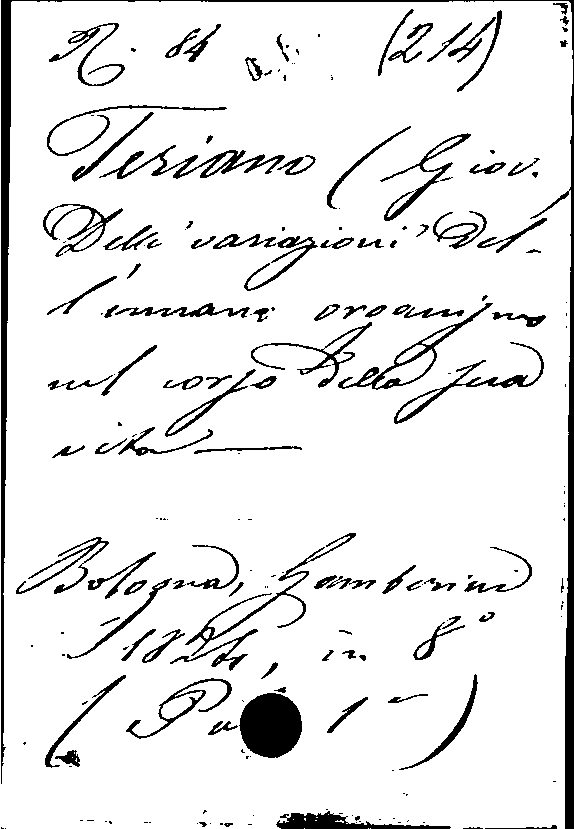 R. 84 (214)
Teriano (Giov.)
Delle variazioni del-
l'umano organismo
nel corso della sua
vita —
Bologna, Gamberini
1824, in 8°
( 1ª)